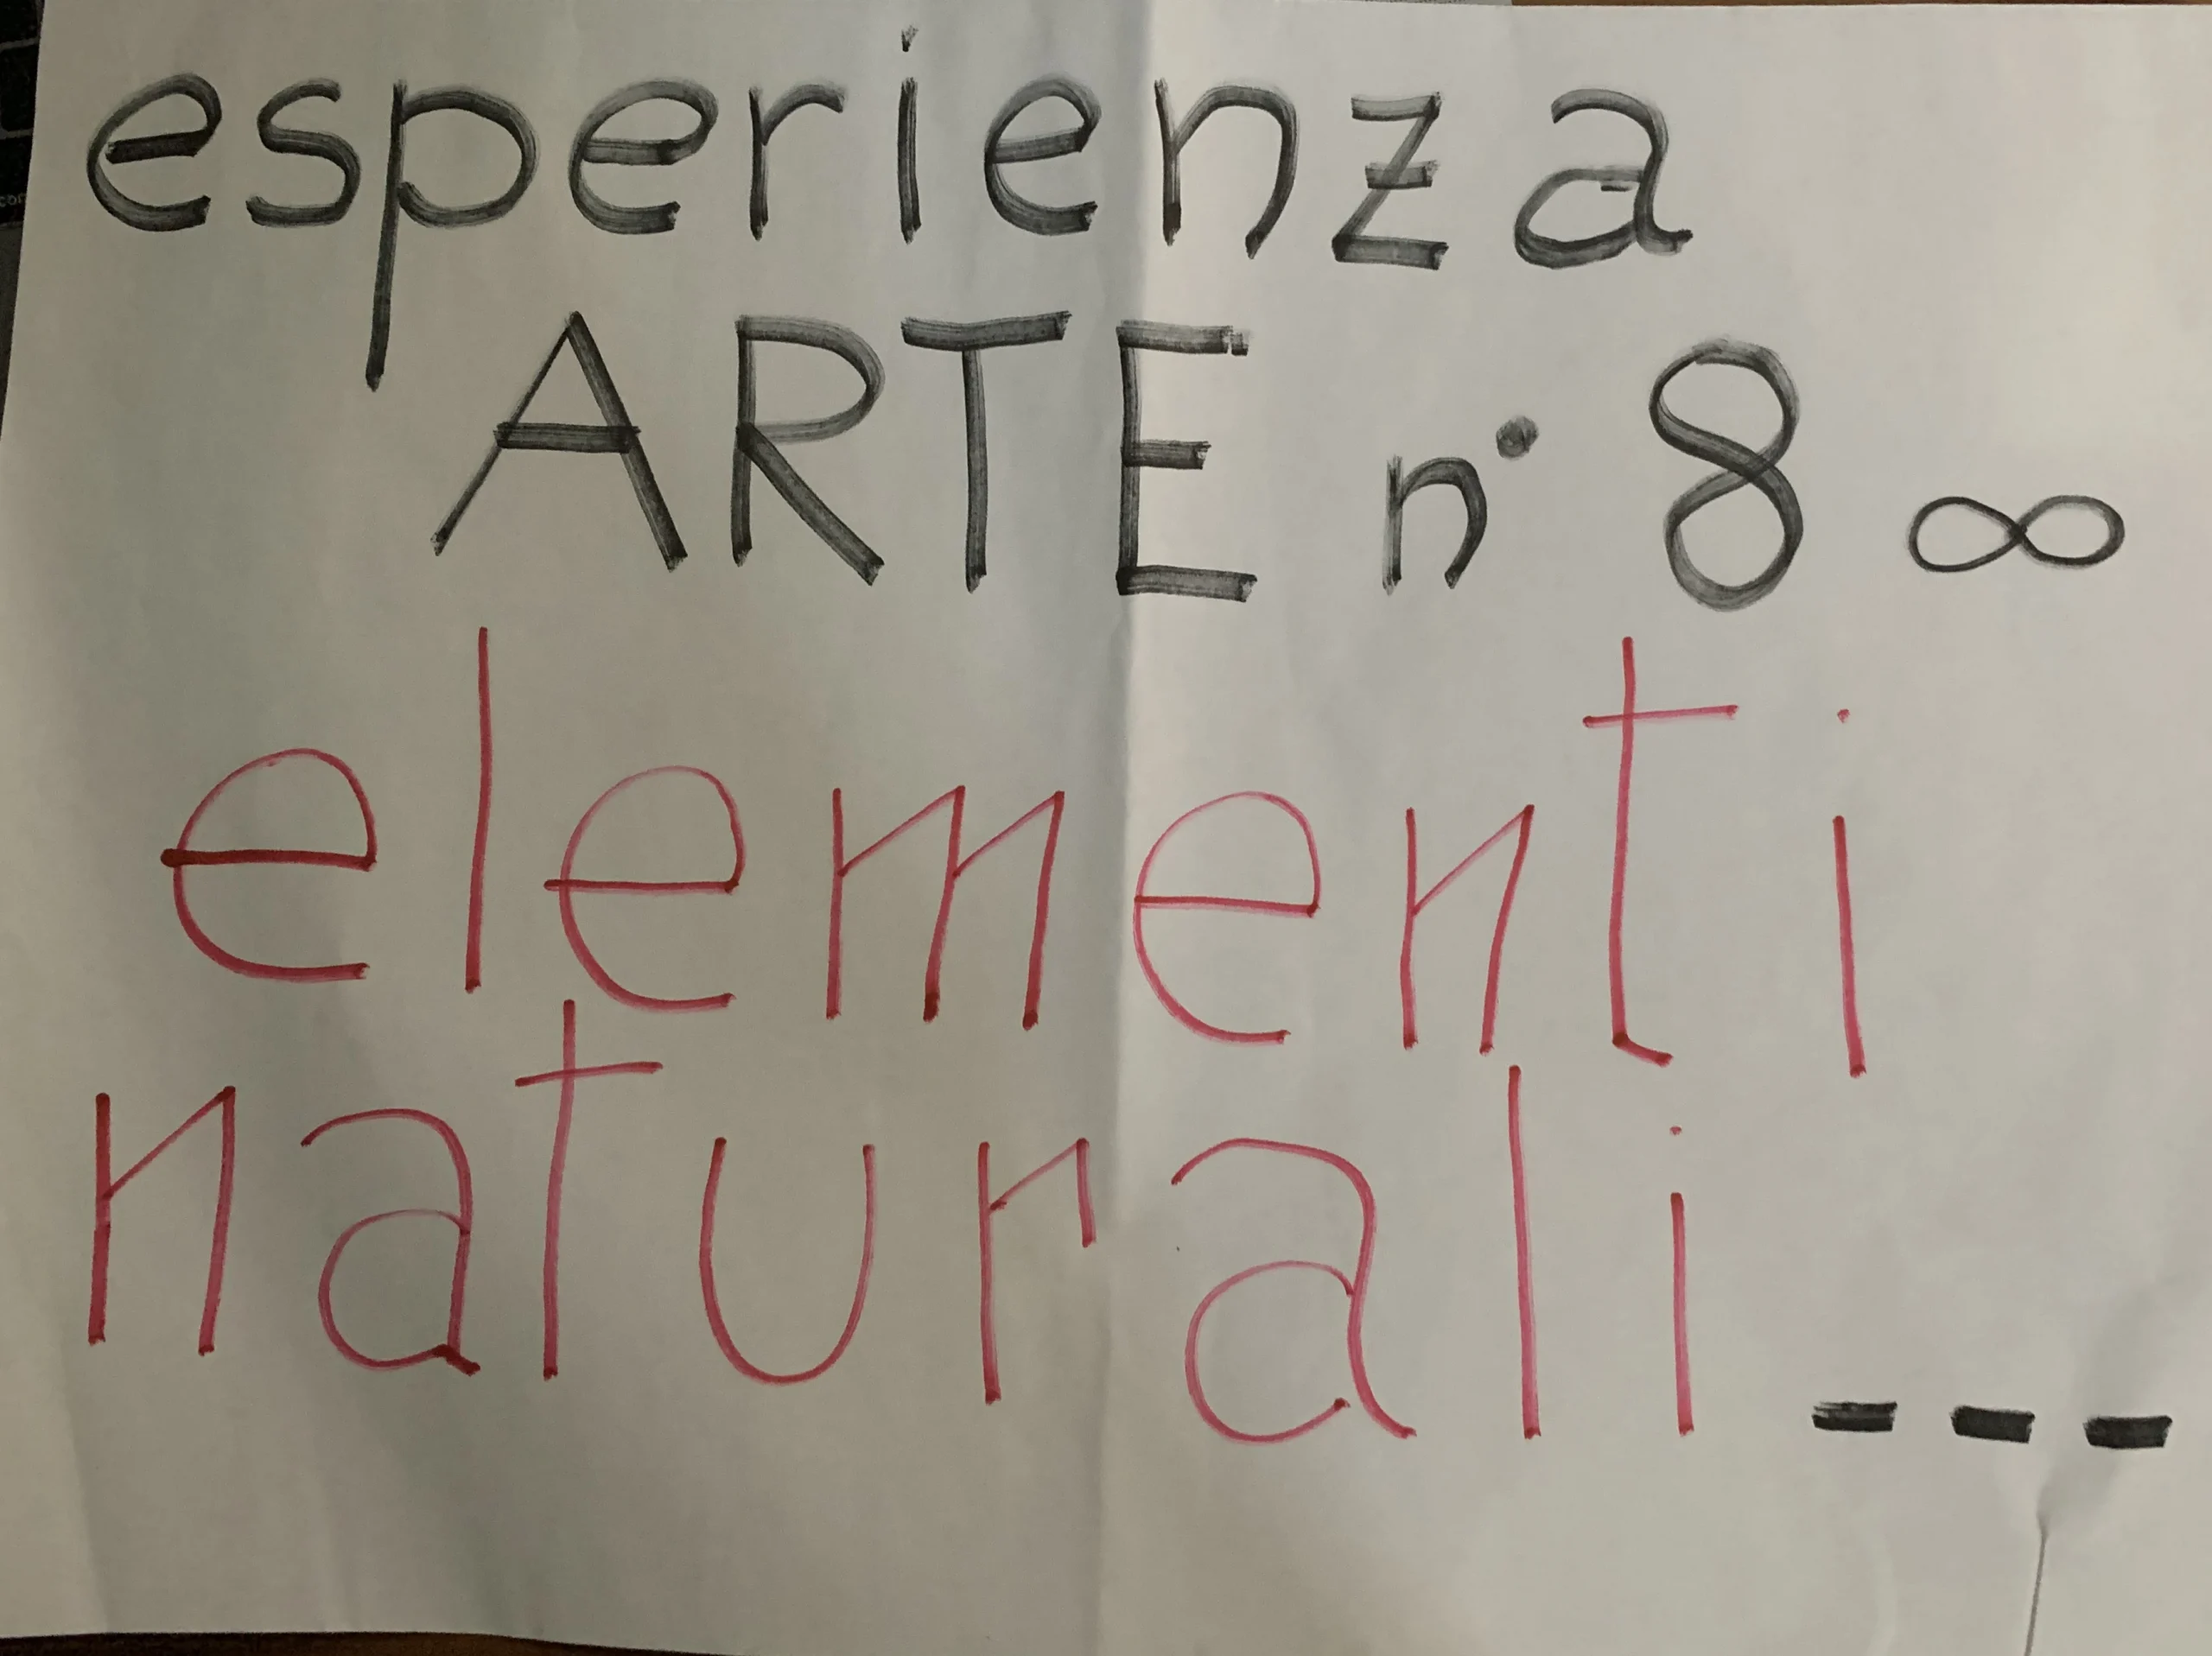 esperienza
ARTE n° 8 ∞
elementi
naturali ---